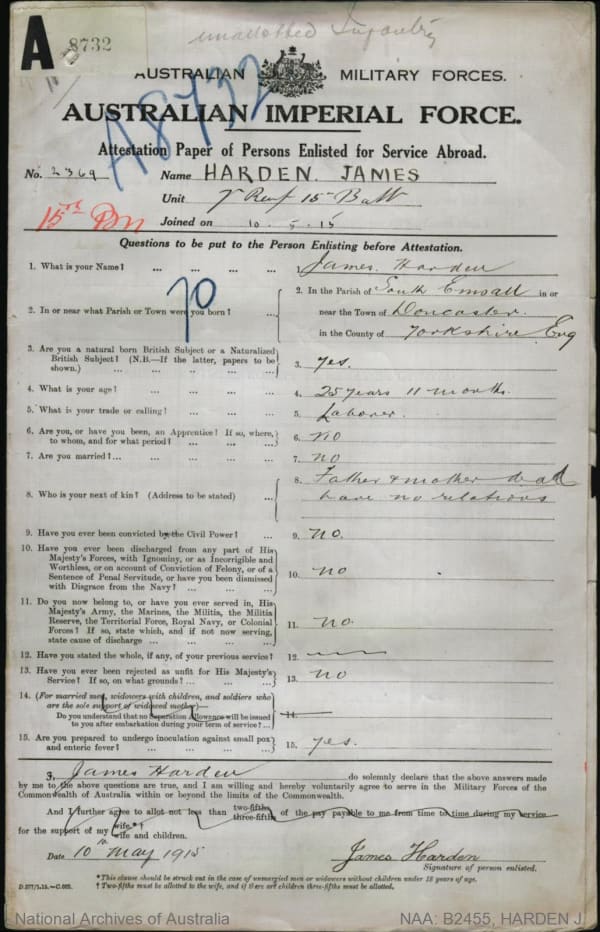 unallotted Infantry
A 8732
A8732
AUSTRALIAN MILITARY FORCES.
AUSTRALIAN IMPERIAL FORCE.
Attestation Paper of Persons Enlisted for Service Abroad.
No. 2369 Name HARDEN. JAMES
Unit 7 Reinf 15 Batt
15th Bn Joined on 10.5.15
Questions to be put to the Person Enlisting before Attestation.
1. What is your Name? ... ... ... ... 1. James Harden
70
2. In or near what Parish or Town were you born? ... 2. In the Parish of South Emsall in or
near the Town of Doncaster.
in the County of Yorkshire Eng
3. Are you a natural born British Subject or a Naturalized
British Subject? (N.B.—If the latter, papers to be
shown.) ... ... ... ... 3. yes.
4. What is your age? ... ... ... ... 4. 25 years 11 months.
5. What is your trade or calling? ... ... ... 5. Laborer.
6. Are you, or have you been, an Apprentice? If so, where,
to whom, and for what period? ... ... ... 6. no
7. Are you married? ... ... ... ... ... 7. no
8. Who is your next of kin? (Address to be stated) ... 8. Father & mother dead
have no relations
9. Have you ever been convicted by the Civil Power? ... 9. no.
10. Have you ever been discharged from any part of His
Majesty's Forces, with Ignominy, or as Incorrigible and
Worthless, or on account of Conviction of Felony, or of a
Sentence of Penal Servitude, or have you been dismissed
with Disgrace from the Navy? ... ... ... 10. no
11. Do you now belong to, or have you ever served in, His
Majesty's Army, the Marines, the Militia, the Militia
Reserve, the Territorial Force, Royal Navy, or Colonial
Forces? If so, state which, and if not now serving,
state cause of discharge ... ... ... ... 11. no.
12. Have you stated the whole, if any, of your previous service? 12.
13. Have you ever been rejected as unfit for His Majesty's
Service? If so, on what grounds? ... ... ... 13. no
14. (For married men, widowers with children, and soldiers who
are the sole support of widowed mother)—
Do you understand that no Separation Allowance will be issued
to you after embarkation during your term of service? ... 14.
15. Are you prepared to undergo inoculation against small pox
and enteric fever? ... ... ... ... 15. yes.
I, James Harden do solemnly declare that the above answers made
by me to the above questions are true, and I am willing and hereby voluntarily agree to serve in the Military Forces of the
Commonwealth of Australia within or beyond the limits of the Commonwealth.
And I further agree to allot not less than two-fifths three-fifths of the pay payable to me from time to time during my service
for the support of my wife.*† wife and children.
Date 10th May 1915 James Harden
Signature of person enlisted.
*This clause should be struck out in the case of unmarried men or widowers without children under 18 years of age.
† Two-fifths must be allotted to the wife, and if there are children three-fifths must be allotted.
D.277/1.15.—C.665.
National Archives of Australia NAA: B2455, HARDEN J.